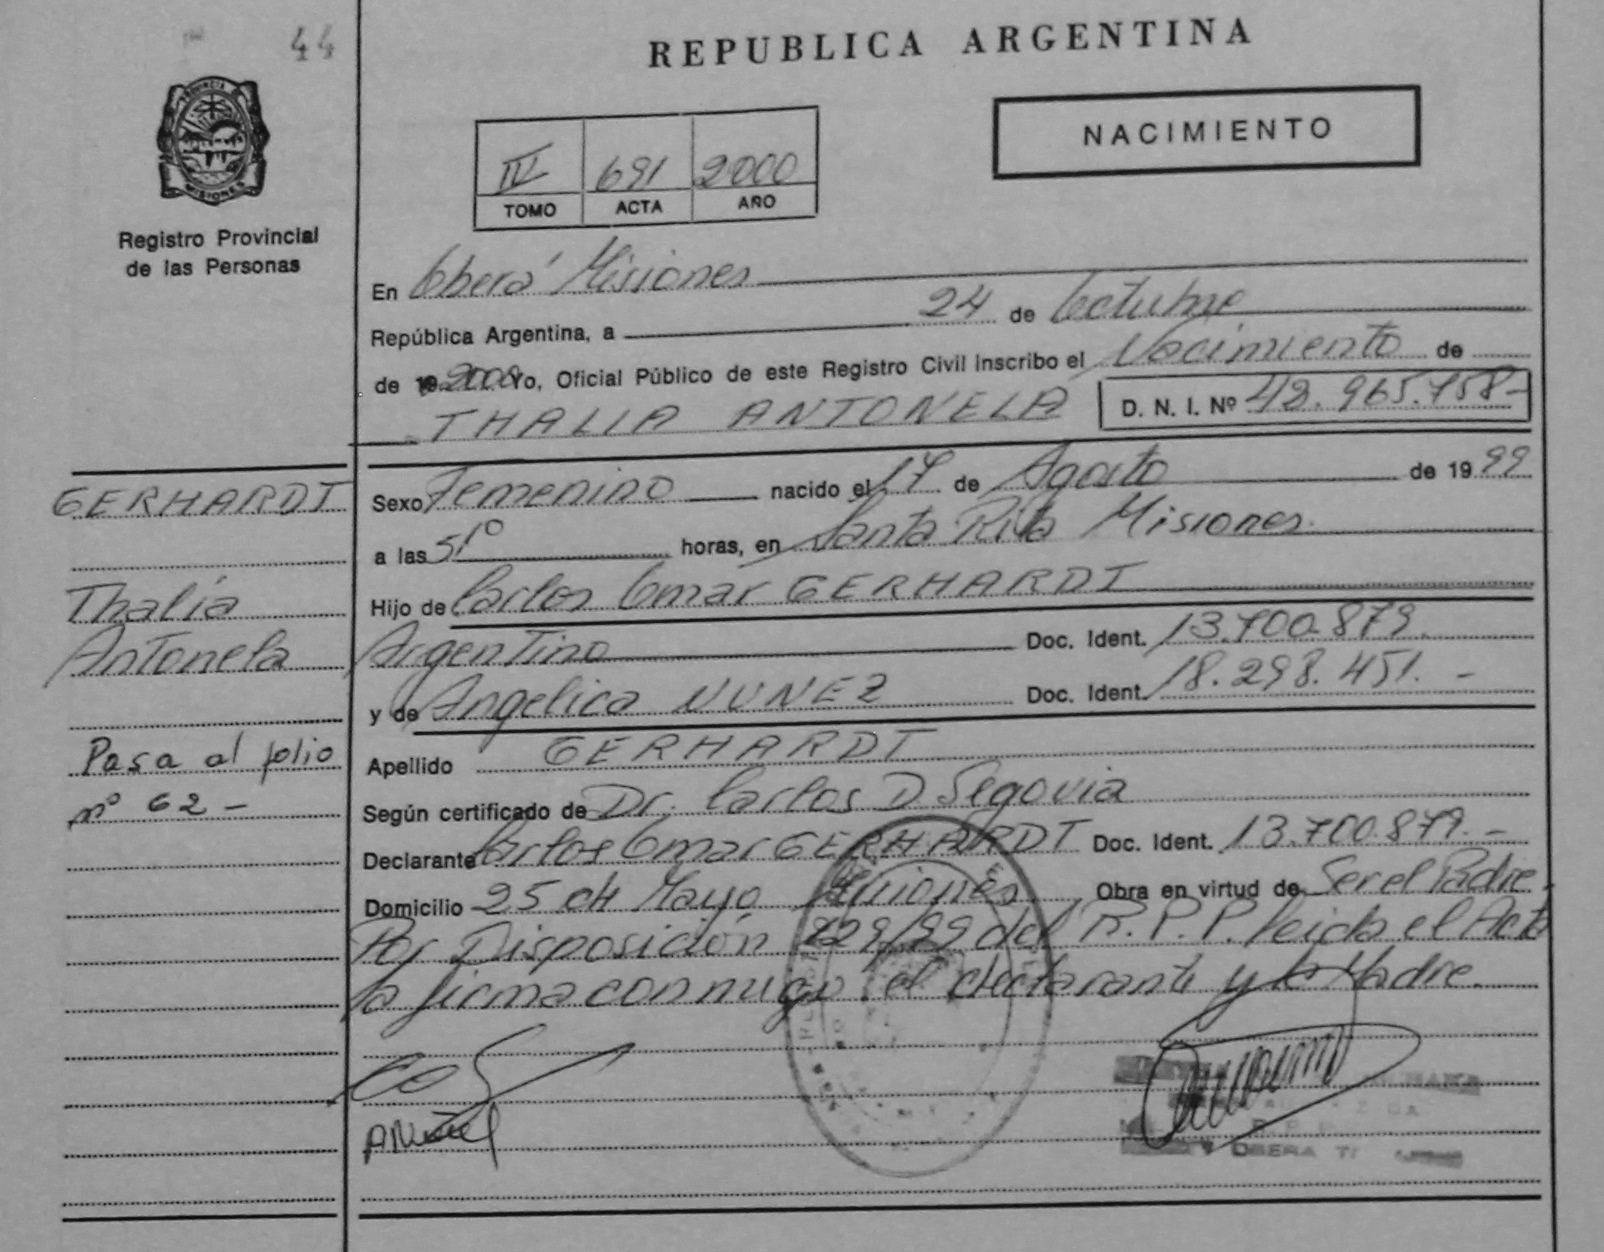 44
REPUBLICA ARGENTINA
NACIMIENTO
PROVINCIA DE
MISIONES
Registro Provincial
de las Personas
IV 691 2000
TOMO ACTA AÑO
En Oberá Misiones
República Argentina, a 24 de Octubre
de 2000 Yo, Oficial Público de este Registro Civil inscribo el Nacimiento de
THALIA ANTONELA D. N. I. Nº 42.965.758-
GERHARDT
Thalía
Antonela
Pasa al folio
nº 62 -
Sexo Femenino nacido el 17 de Agosto de 1999
a las 51º horas, en Santa Rita Misiones.
Hijo de Carlos Omar GERHARDT
Argentino Doc. Ident. 13.700.879.
y de Angelica NUNEZ Doc. Ident. 18.298.451. -
Apellido GERHARDT
Según certificado de Dr. Carlos D Segovia
Declarante Carlos Omar GERHARDT Doc. Ident. 13.700.879. -
Domicilio 25 de Mayo Misiones Obra en virtud de Ser el Padre.
Por Disposición 229/99 del R.P.P. leida el Acta
la firma conmigo el declarante y la Madre.
OBERA